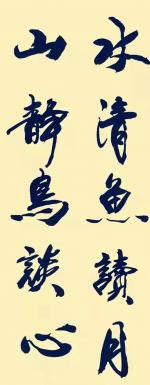 水清魚讀月
山靜鳥談心